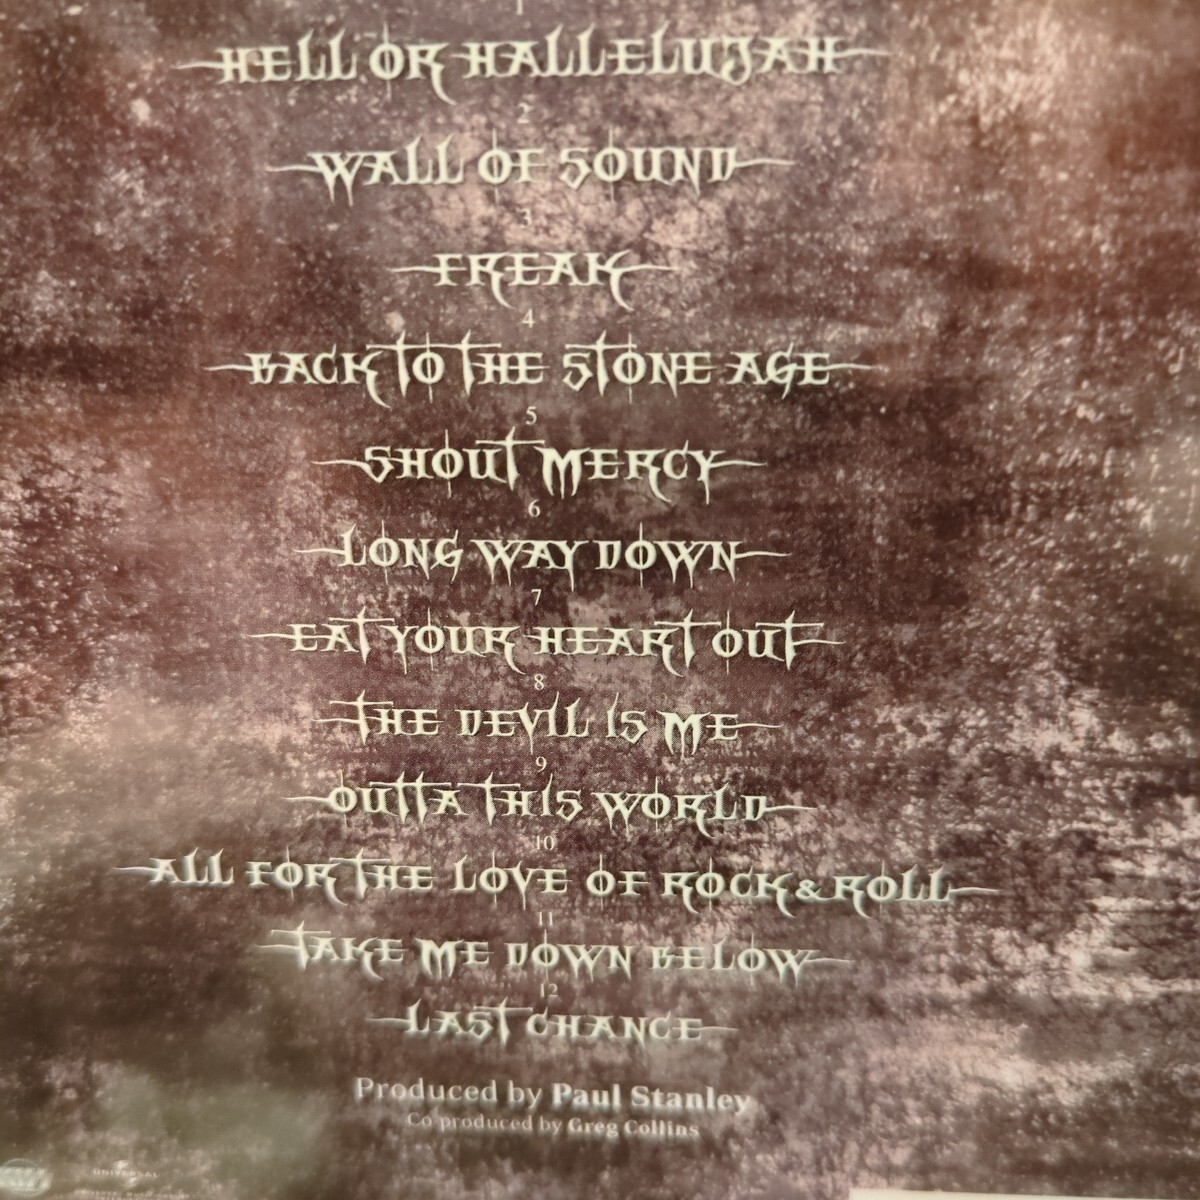 1
HELL OR HALLELUJAH
2
WALL OF SOUND
3
FREAK
4
BACK TO THE STONE AGE
5
SHOUT MERCY
6
LONG WAY DOWN
7
EAT YOUR HEART OUT
8
THE DEVIL IS ME
9
OUTTA THIS WORLD
10
ALL FOR THE LOVE OF ROCK & ROLL
11
TAKE ME DOWN BELOW
12
LAST CHANCE
Produced by Paul Stanley
Co produced by Greg Collins
UNIVERSAL